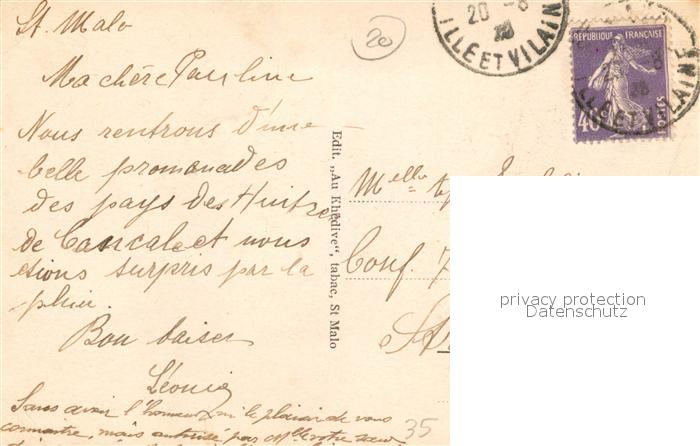 St. Malo
Ma chère Pauline
Nous rentrons d'une
belle promenades
des pays des Huitres
de Cancale et nous
étions surpris par la
pluie.
Bon baiser
Léonie
Sans avoir l'honneur ni le plaisir de vous
connaitre, mais autorisé par Mlle votre sœur
20
20 - 8
ILLE ET VILAINE
RÉPUBLIQUE FRANÇAISE
40
POSTES
ILLE ET VILAINE
Edit. „Au Khédive“, tabac, St Malo
Melle
Conf.
St
privacy protection
Datenschutz
35